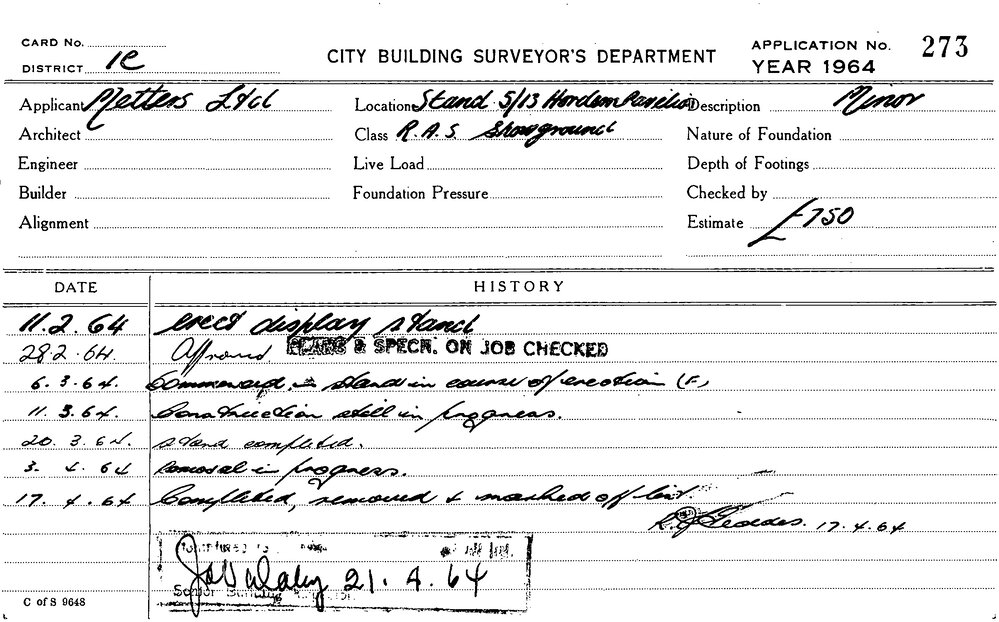 CARD No.
DISTRICT 1C
CITY BUILDING SURVEYOR'S DEPARTMENT
APPLICATION No. 273
YEAR 1964
Applicant Metters Ltd Location Stand 5/13 Hordern Pavilion Description Minor
Architect Class R.A.S Showground Nature of Foundation
Engineer Live Load Depth of Footings
Builder Foundation Pressure Checked by
Alignment Estimate £750
DATE HISTORY
11.2.64 erect display stand
28.2.64. Approved PLANS & SPECN. ON JOB CHECKED
6.3.64. Commenced, stand in course of erection (F)
11.3.64. Construction still in progress.
20.3.64. stand completed.
3.4.64 removal in progress.
17.4.64 Completed, removed & marked off list.
17.4.64
21.4.64
Senior Building
C of S 9648